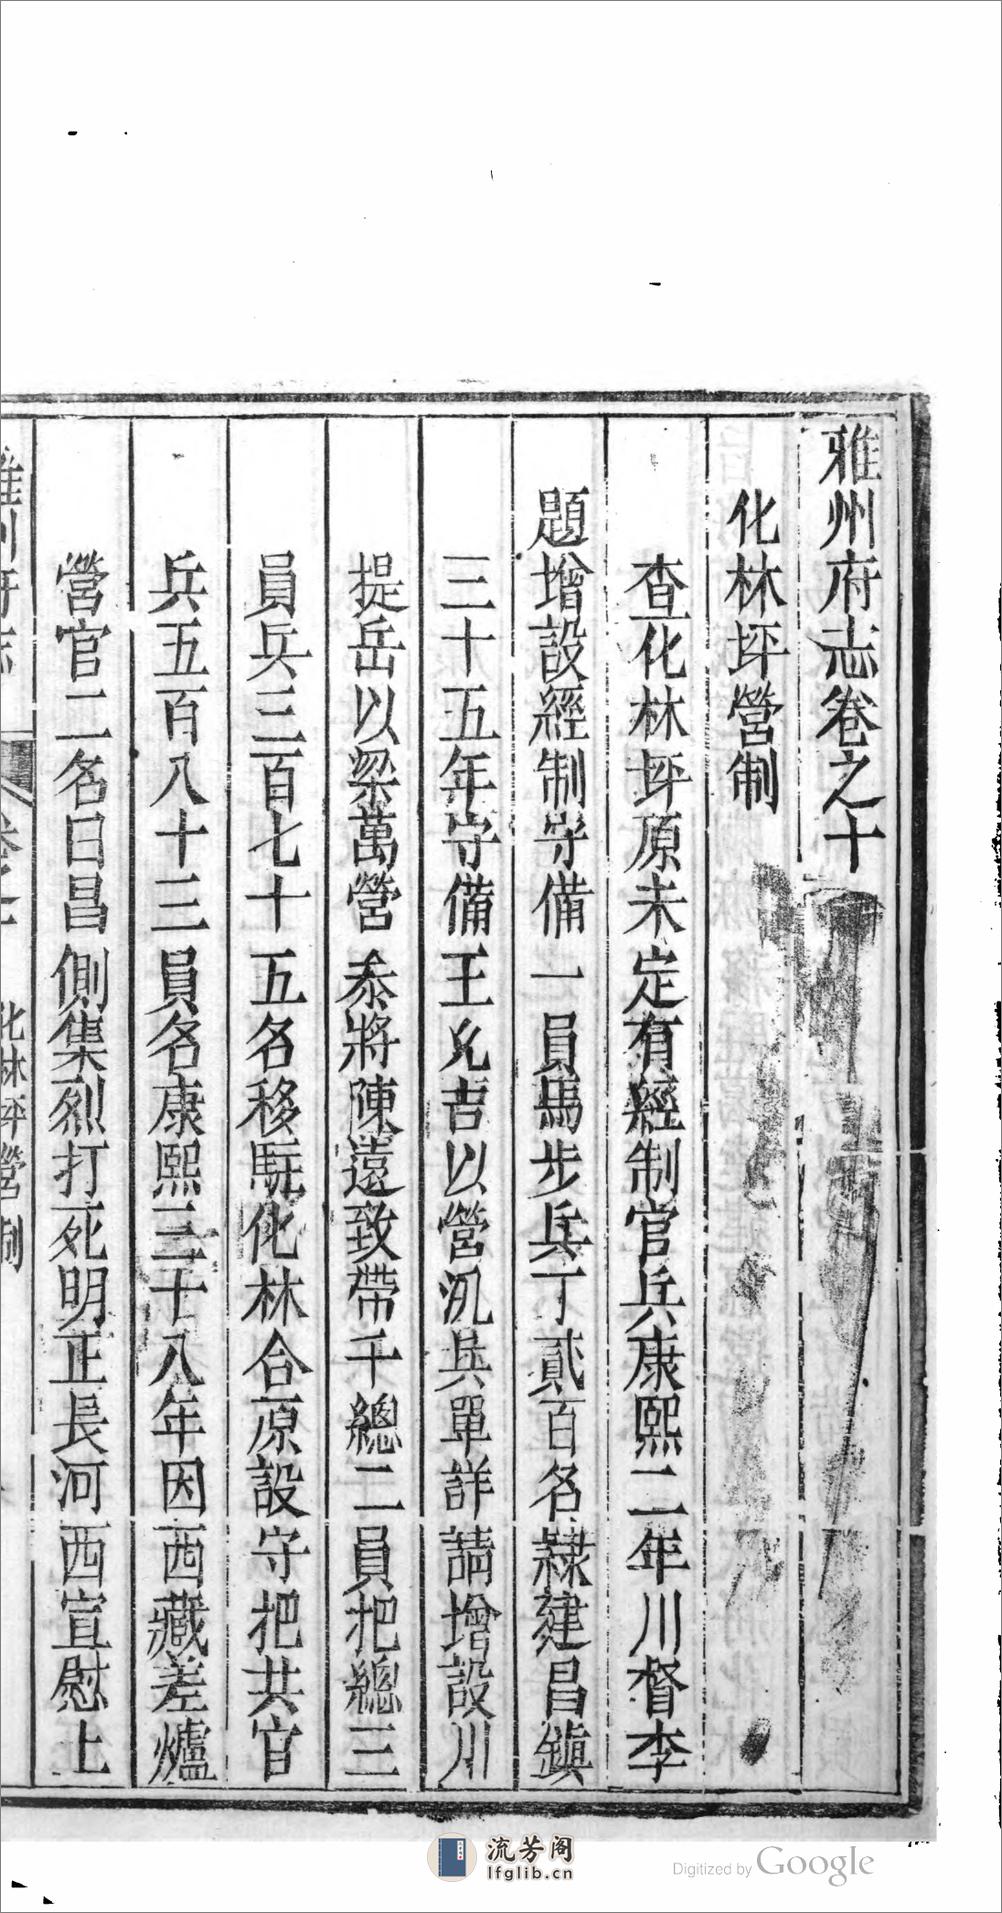 雅州府志卷之十
化林坪營制
查化林坪原未定有經制官兵康熙二年川督李
題增設經制守備一員馬步兵丁貳百名隸建昌鎮
三十五年守備王允吉以營汛兵單詳請增設川
提岳以梁萬營叅將陳遠致帶千總二員把總三
員兵三百七十五名移駐化林合原設守把共官
兵五百八十三員名康熙三十八年因西藏差爐
營官二名曰昌側集烈打死明正長河西宣慰上
雅州府志
卷之十
化林坪營制
流芳阁
lfglib.cn
Digitized by Google